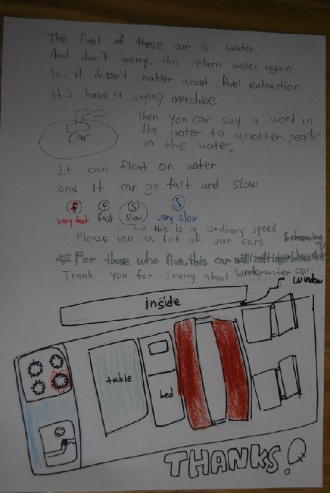 The fuel of these car is water.
And don't worry. this return water again
So, it doesn't matter about fuel extinction
It's have a saying machine
Then you can say a word in
the water to another people
in the water.
car
It can float on water
and it can go fast and slow
f f S S
very fast fast slow very slow
this is a ordinary speed
Please use a lot of our cars
For those who live, this car will
Thank you for Seeing about underwater car
window
inside
table
bed
THANKS!